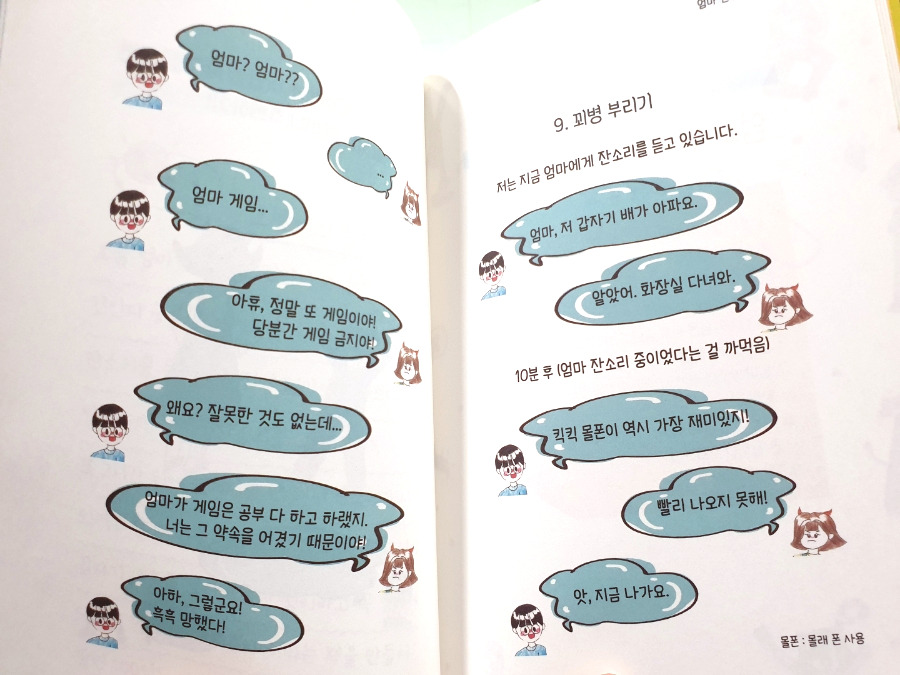 엄마? 엄마??
...
엄마 게임...
아휴, 정말 또 게임이야!
당분간 게임 금지야!
왜요? 잘못한 것도 없는데...
엄마가 게임은 공부 다 하고 하랬지.
너는 그 약속을 어겼기 때문이야!
아하, 그렇군요!
흑흑 망했다!
엄마
9. 꾀병 부리기
저는 지금 엄마에게 잔소리를 듣고 있습니다.
엄마, 저 갑자기 배가 아파요.
알았어. 화장실 다녀와.
10분 후 (엄마 잔소리 중이었다는 걸 까먹음)
킥킥 몰폰이 역시 가장 재미있지!
빨리 나오지 못해!
앗, 지금 나가요.
몰폰 : 몰래 폰 사용